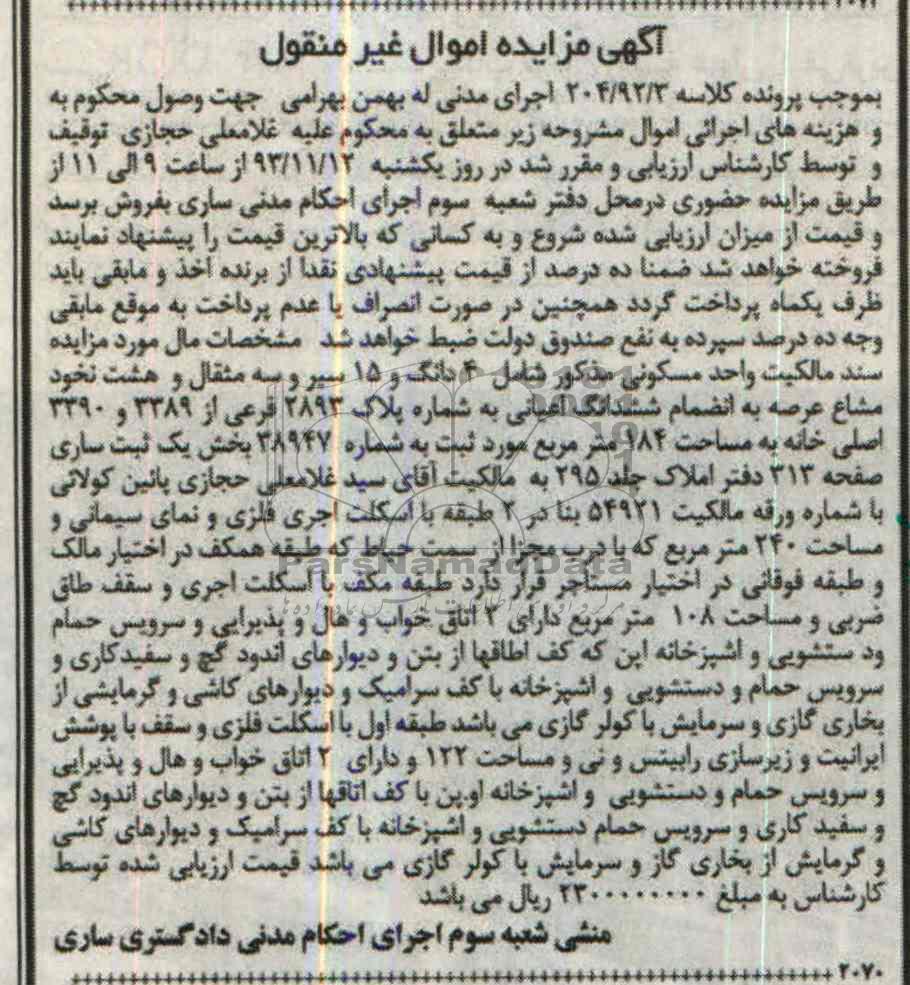 ۲۰۷۱
آگهی مزایده اموال غیر منقول
بموجب پرونده کلاسه ۲۰۴/۹۲/۳ اجرای مدنی له بهمن بهرامی جهت وصول محکوم به
و هزینه های اجرائی اموال مشروحه زیر متعلق به محکوم علیه غلامعلی حجازی توقیف
و توسط کارشناس ارزیابی و مقرر شد در روز یکشنبه ۹۳/۱۱/۱۲ از ساعت ۹ الی ۱۱ از
طریق مزایده حضوری درمحل دفتر شعبه سوم اجرای احکام مدنی ساری بفروش برسد
و قیمت از میزان ارزیابی شده شروع و به کسانی که بالاترین قیمت را پیشنهاد نمایند
فروخته خواهد شد ضمنا ده درصد از قیمت پیشنهادی نقدا از برنده اخذ و مابقی باید
ظرف یکماه پرداخت گردد همچنین در صورت انصراف یا عدم پرداخت به موقع مابقی
وجه ده درصد سپرده به نفع صندوق دولت ضبط خواهد شد مشخصات مال مورد مزایده
سند مالکیت واحد مسکونی مذکور شامل ۴ دانگ و ۱۵ سیر و سه مثقال و هشت نخود
مشاع عرصه به انضمام ششدانگ اعیانی به شماره پلاک ۲۸۹۳ فرعی از ۳۳۸۹ و ۳۳۹۰
اصلی خانه به مساحت ۱۸۴ متر مربع مورد ثبت به شماره ۳۸۹۴۷ بخش یک ثبت ساری
صفحه ۳۱۳ دفتر املاک جلد ۲۹۵ به مالکیت آقای سید غلامعلی حجازی پائین کولائی
با شماره ورقه مالکیت ۵۴۹۲۱ بنا در ۲ طبقه با اسکلت اجری فلزی و نمای سیمانی و
مساحت ۲۴۰ متر مربع که با درب مجزا از سمت حیاط که طبقه همکف در اختیار مالک
و طبقه فوقانی در اختیار مستاجر قرار دارد طبقه مکف با اسکلت اجری و سقف طاق
ضربی و مساحت ۱۰۸ متر مربع دارای ۲ اتاق خواب و هال و پذیرایی و سرویس حمام
ود ستشویی و اشپزخانه این که کف اطاقها از بتن و دیوارهای اندود گچ و سفیدکاری و
سرویس حمام و دستشویی و اشپزخانه با کف سرامیک و دیوارهای کاشی و گرمایشی از
بخاری گازی و سرمایش با کولر گازی می باشد طبقه اول با اسکلت فلزی و سقف با پوشش
ایرانیت و زیرسازی رابیتس و نی و مساحت ۱۲۲ و دارای ۲ اتاق خواب و هال و پذیرایی
و سرویس حمام و دستشویی و اشپزخانه او.پن با کف اتاقها از بتن و دیوارهای اندود گچ
و سفید کاری و سرویس حمام دستشویی و اشپزخانه با کف سرامیک و دیوارهای کاشی
و گرمایش از بخاری گاز و سرمایش با کولر گازی می باشد قیمت ارزیابی شده توسط
کارشناس به مبلغ ۲۳۰۰۰۰۰۰۰۰ ریال می باشد
منشی شعبه سوم اجرای احکام مدنی دادگستری ساری
۲۰۷۰
ParsNamadData